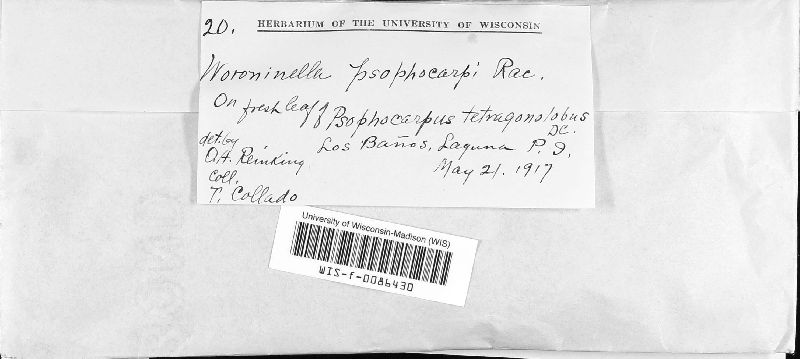 20. HERBARIUM OF THE UNIVERSITY OF WISCONSIN
Woroninella psophocarpi Rac.
On fresh leaf of Psophocarpus tetragonolobus DC.
Los Baños, Laguna P. I.
May 21. 1917
det. by
O. A. Reinking
Coll.
T. Collado
University of Wisconsin-Madison (WIS)
WIS-f-0086430